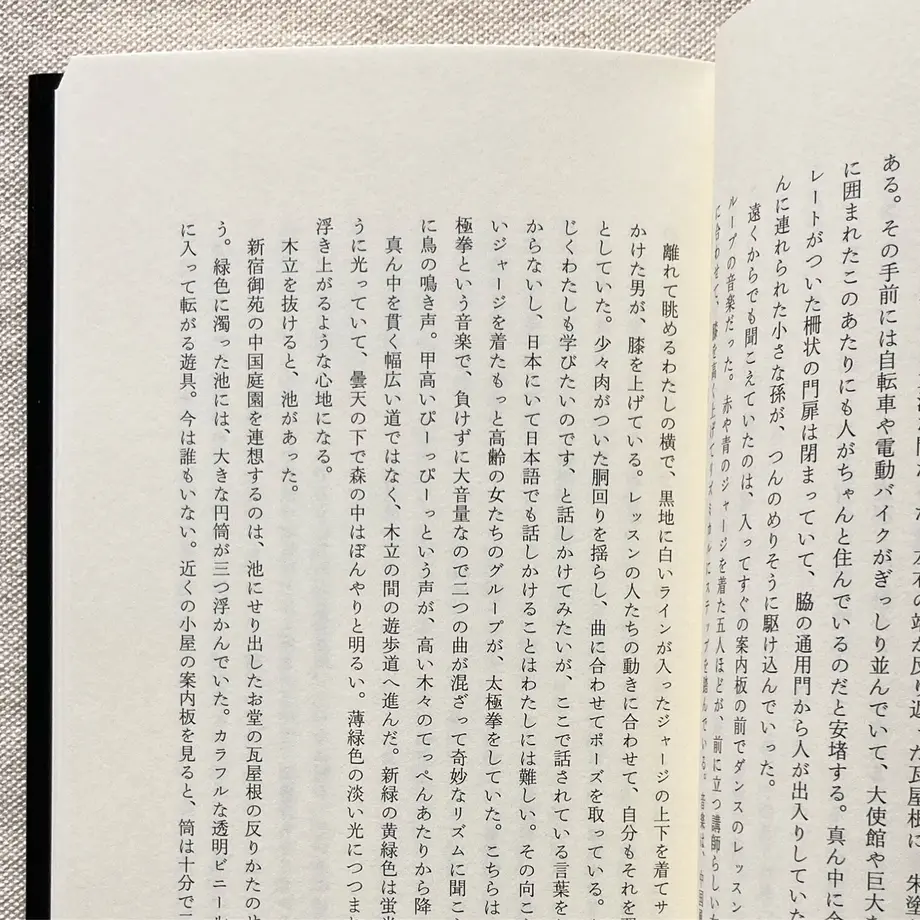 ある。その手前には自転車や電動バイクがぎっしり並んでいて、大使館や巨大
に囲まれたこのあたりにも人がちゃんと住んでいるのだと安堵する。真ん中に金
レートがついた柵状の門扉は閉まっていて、脇の通用門から人が出入りしてい
んに連れられた小さな孫が、つんのめりそうに駆け込んでいった。
遠くからでも聞こえていたのは、入ってすぐの案内板の前でダンスのレッスン
ループの音楽だった。赤や青のジャージを着た五人ほどが、前に立つ講師らしい
に合わせて、膝を高く上げてリズミカルにステップを踏んでいる。音楽は、中国
離れて眺めるわたしの横で、黒地に白いラインが入ったジャージの上下を着てサ
かけた男が、膝を上げている。レッスンの人たちの動きに合わせて、自分もそれを
としていた。少々肉がついた胴回りを揺らし、曲に合わせてポーズを取っている。
じくわたしも学びたいのです、と話しかけてみたいが、ここで話されている言葉を
からないし、日本にいて日本語でも話しかけることはわたしには難しい。その向こ
いジャージを着たもっと高齢の女たちのグループが、太極拳をしていた。こちらは
極拳という音楽で、負けずに大音量なので二つの曲が混ざって奇妙なリズムに聞こ
に鳥の鳴き声。甲高いぴーっぴーっという声が、高い木々のてっぺんあたりから降
真ん中を貫く幅広い道ではなく、木立の間の遊歩道へ進んだ。新緑の黄緑色は蛍光
うに光っていて、曇天の下で森の中はぼんやりと明るい。薄緑色の淡い光につつま
浮き上がるような心地になる。
木立を抜けると、池があった。
新宿御苑の中国庭園を連想するのは、池にせり出したお堂の瓦屋根の反りかたの
う。緑色に濁った池には、大きな円筒が三つ浮かんでいた。カラフルな透明ビニール
に入って転がる遊具。今は誰もいない。近くの小屋の案内板を見ると、筒は十分で